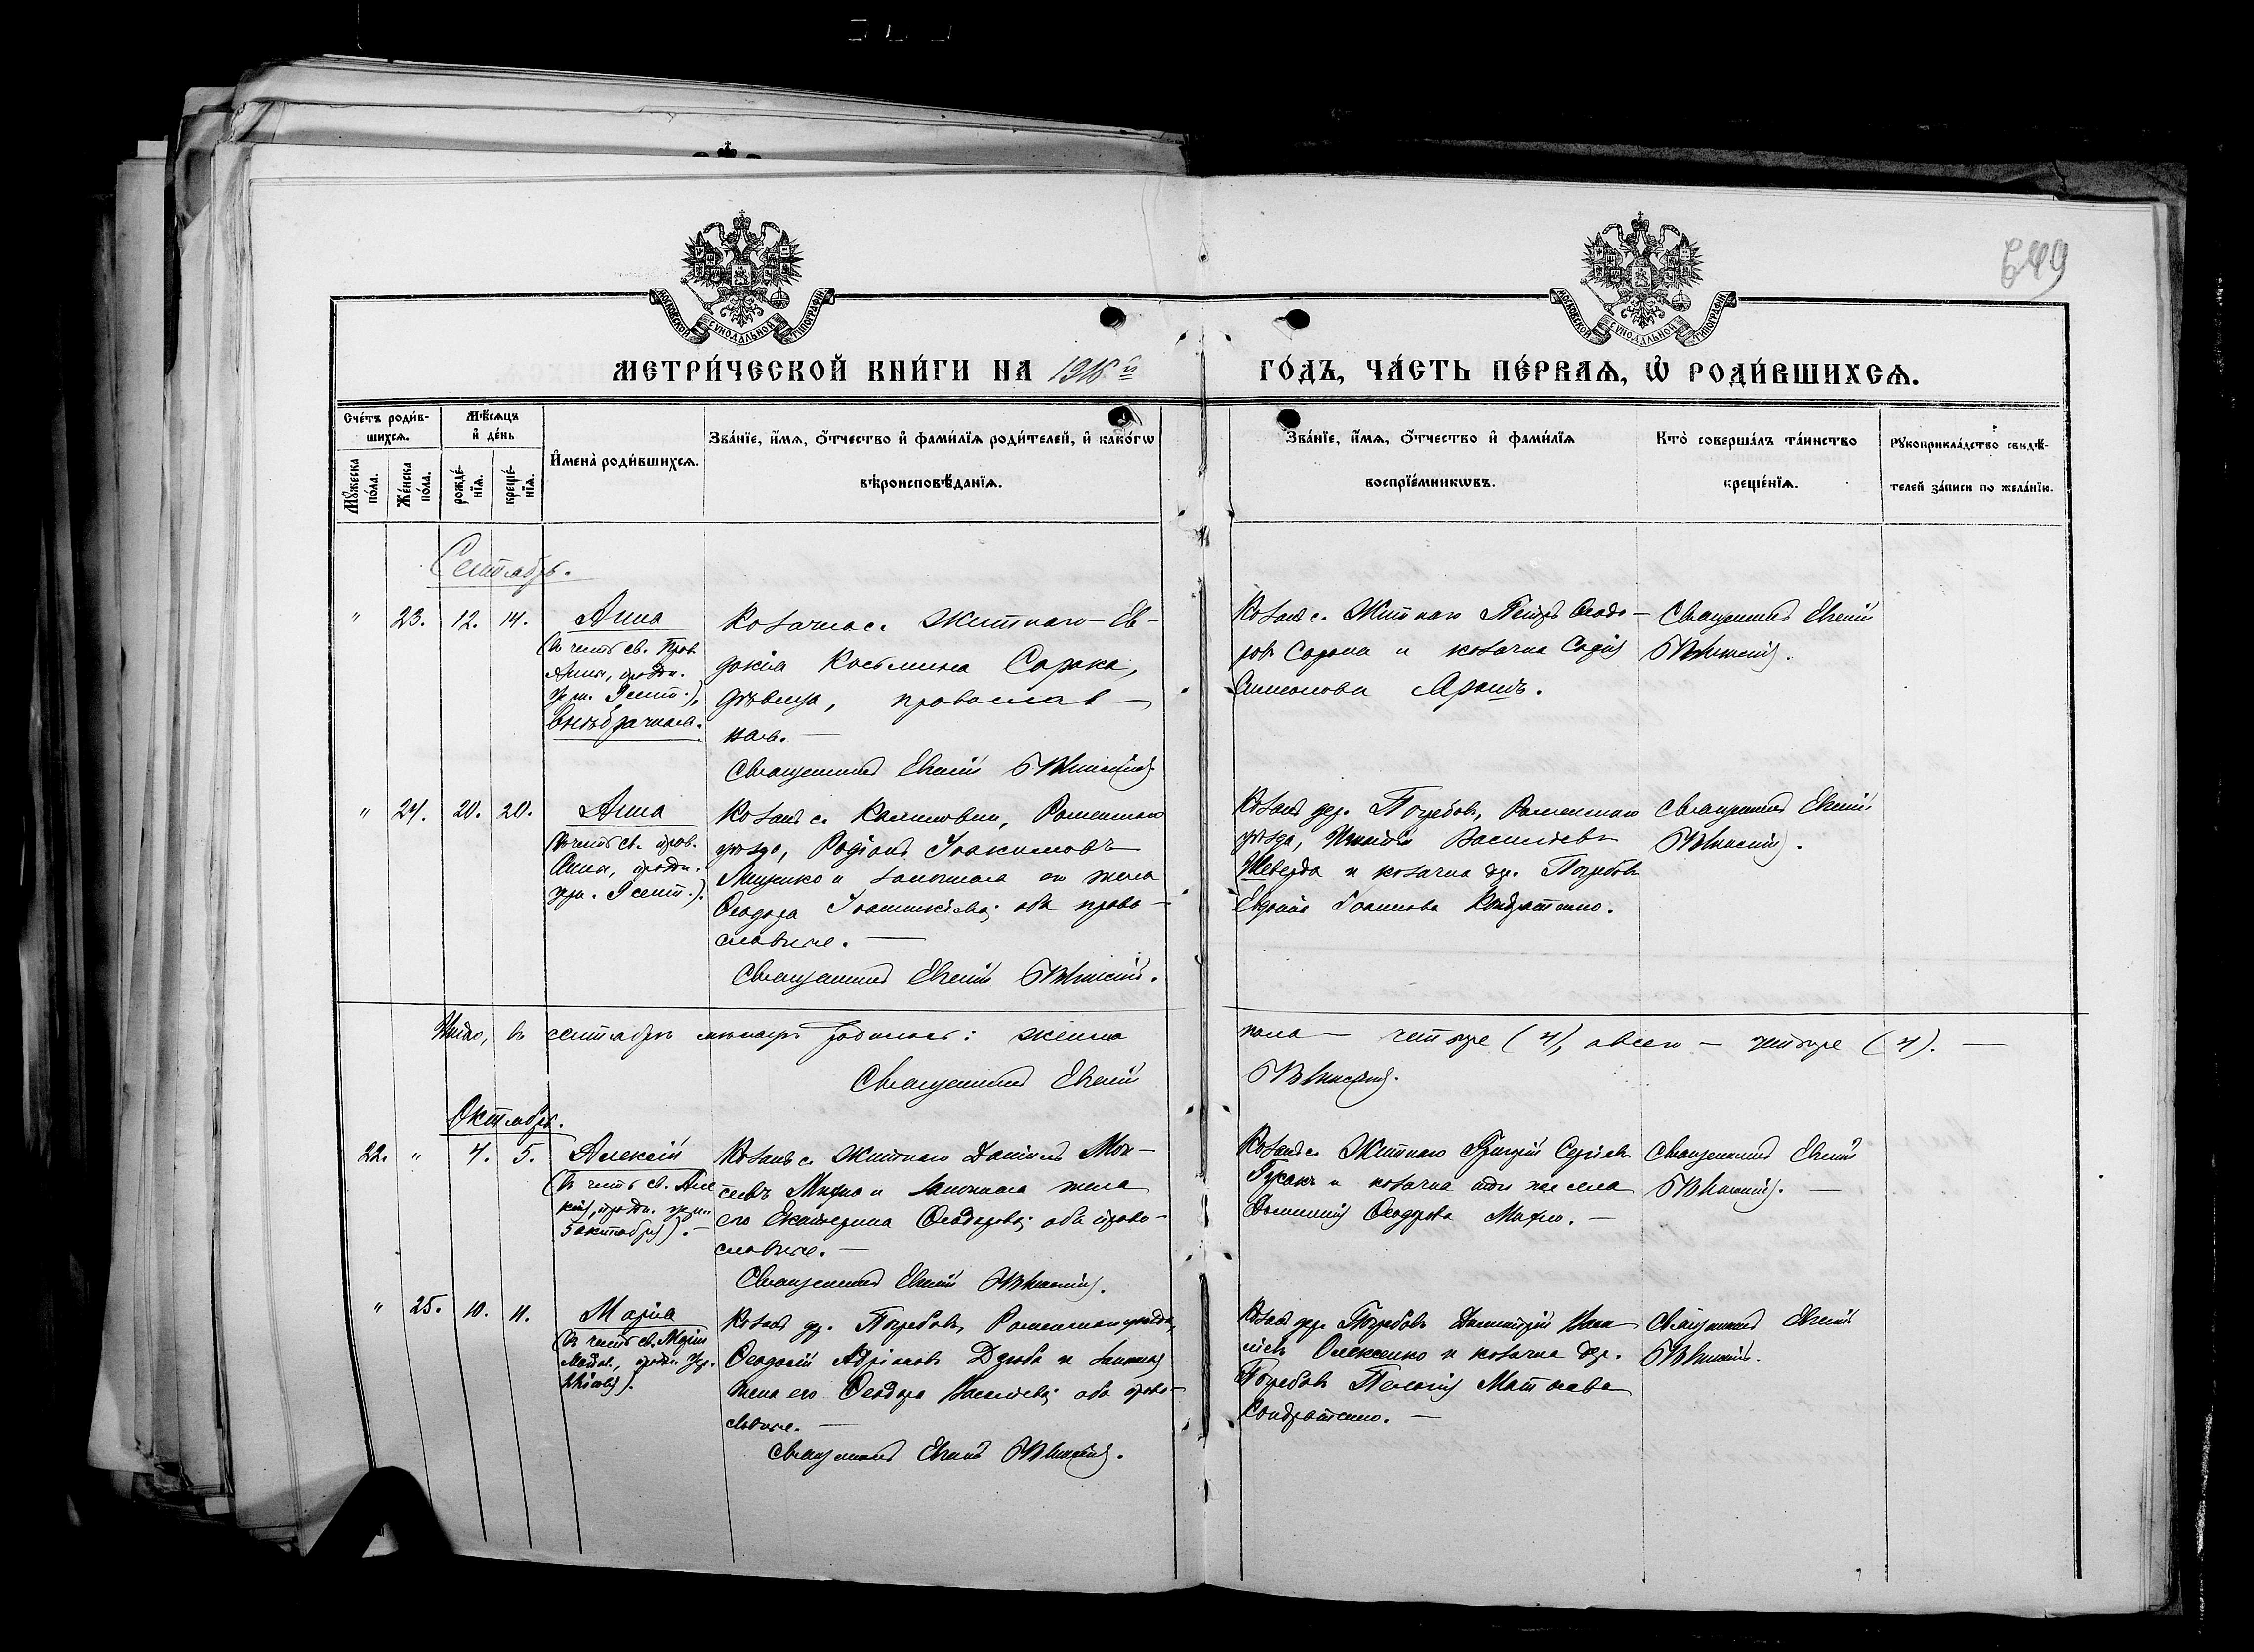 649
МОСКОВСКОЙ СѴНОДАЛЬНОЙ ТИПОГРАФІИ
МОСКОВСКОЙ СѴНОДАЛЬНОЙ ТИПОГРАФІИ
МЕТРИ́ЧЕСКОЙ КНИ́ГИ НА 1916 й
ГО́ДЪ, ЧА́СТЬ ПЕ́РВАѦ, Ѽ РОДИ́ВШИХСѦ.
Сче́тъ роди́в-
шихсѧ.
Мѣ́сѧцъ
и҆ де́нь
Мꙋ́жеска по́ла.
Же́нска по́ла.
рожде́-
нїѧ.
креще́-
нїѧ.
И҆мена̀ роди́вшихсѧ.
Зва́нїе, и҆́мѧ, ѻ҆́тчество и҆ фами́лїѧ роди́телей, и҆ како́гѡ
вѣроисповѣ́данїѧ.
Зва́нїе, и҆́мѧ, ѻ҆́тчество и҆ фами́лїѧ
воспрїе́мникѡвъ.
Кто̀ соверша́лъ та́инство
креще́нїѧ.
Рꙋкоприкла́дство свидѣ́-
телей за́писи по жела́нїю.
Сентябрь.
" 23. 12. 14.
Анна
(въ честь св. Прав.
Анны, праздн.
9 сент.).
Внѣбрачная.
Козачка с. Житнаго Ев-
докія Косьмина Сорока,
дѣвица, православ-
ная. —
Священникъ Евгеній
Козакъ с. Житнаго Петръ Ѳеодо-
ровъ Сорока и козачка Софія
Священникъ Евгеній
" 24. 20. 20.
Анна
(въ честь св. прав.
Анны, праздн.
9 сент.).
Козакъ с. Калиновки, Роменскаго
уѣзда, Родіонъ Іоакимовъ
и законная его жена
Ѳеодора обa право-
славные. —
Священникъ Евгеній
Козакъ дер. Погребовъ, Роменскаго
уѣзда, Васильевъ
Шеверда и козачка дер. Погребовъ
Евдокія Іоаннова Кондратенко.
Священникъ Евгеній
Итого, въ сентябрѣ мѣсяцѣ родилось: женска
пола — четыре (4), а всего — четыре (4). —
Священникъ Евгеній
Октябрь.
22. " 4. 5.
Алексій
(въ честь св. Але-
ксія, праздн.
5 октября). —
Козакъ с. Житнаго Даніилъ Мои-
сеевъ и законная жена
его Екатерина Ѳеодорова; оба право-
славные. —
Священникъ Евгеній
Козакъ с. Житнаго Григорій Сергіевъ
Гусакъ и козачка того же села
Ѳеодорова
Священникъ Евгеній
" 25. 10. 11.
Марія
(въ честь св. Маріи
Козакъ др. Погребовъ, Роменскаго уѣзда,
Ѳеодосій Адріановъ Дзюба и законная
жена его Ѳеодора Васильева; оба право-
славные. —
Священникъ Евгеній
Козакъ дер. Погребовъ Димитрій
Олексенко и козачка дер.
Погребовъ Пелагія Матѳеева
Кондратенко. —
Священникъ Евгеній